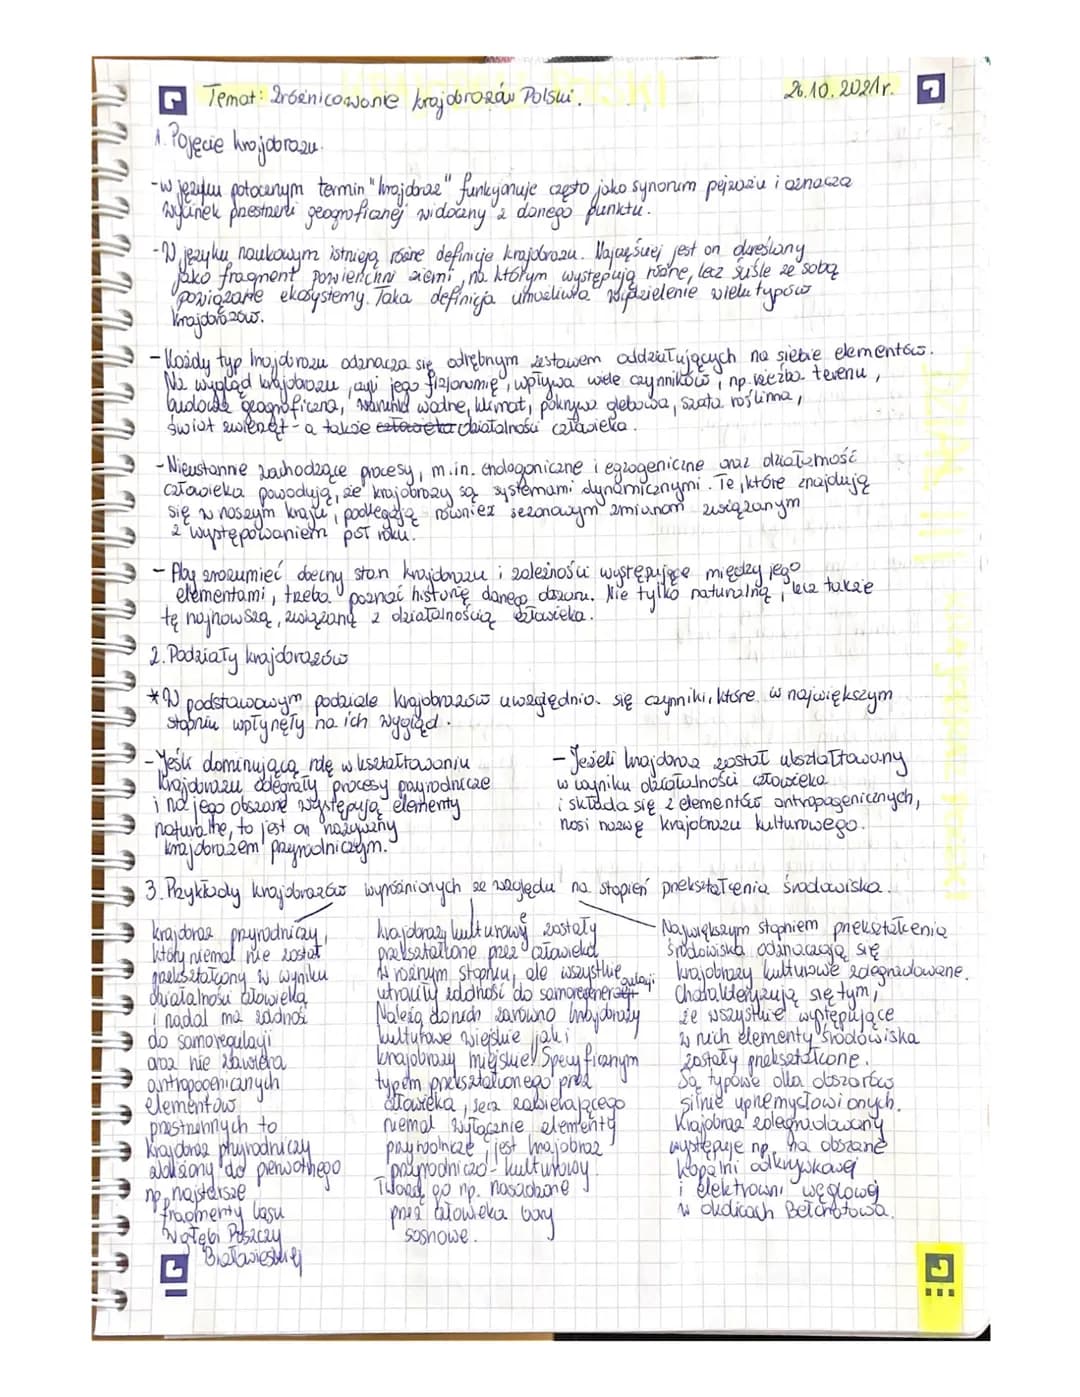 Temat: Zróżnicowanie krajobrazów Polski.
26.10.2021r.
1. Pojęcie krajobrazu.
-w języku potocznym termin "krajobraz" funkcjonuje często jako synonim pejzażu i oznacza
wycinek przestrzeni geograficznej widoczny z danego punktu.
-W języku naukowym istnieją różne definicje krajobrazu. Najczęściej jest on określany
jako fragment powierzchni ziemi, na którym występują różne, lecz ściśle ze sobą
powiązane ekosystemy. Taka definicja umożliwia wydzielenie wielu typów
krajobrazów.
- Każdy typ krajobrazu odznacza się odrębnym zestawem oddziałujących na siebie elementów.
Na wygląd krajobrazu, czyli jego fizjonomię, wpływa wiele czynników, np. rzeźba terenu,
budowa geograficzna, warunki wodne, klimat, pokrywa glebowa, szata roślinna,
świat zwierząt - a także człowieka działalności człowieka.
- Nieustannie zachodzące procesy, m.in. endogeniczne i egzogeniczne oraz działalność
człowieka powodują, że krajobrazy są systemami dynamicznymi. Te, które znajdują
się w naszym kraju, podlegają również sezonowym zmianom związanym
z występowaniem pór roku.
- Aby zrozumieć obecny stan krajobrazu i zależności występujące między jego
elementami, trzeba poznać historię danego obszaru. Nie tylko naturalną, lecz także
tę najnowszą, związaną z działalnością człowieka.
2. Podziały krajobrazów
*W podstawowym podziale krajobrazów uwzględnia się czynniki, które w największym
stopniu wpłynęły na ich wygląd.
-Jeśli dominującą rolę w kształtowaniu
krajobrazu odegrały procesy przyrodnicze
i na jego obszarze występują elementy
naturalne, to jest on nazywany
krajobrazem przyrodniczym.
- Jeżeli krajobraz został ukształtowany
w wyniku działalności człowieka
i składa się z elementów antropogenicznych,
nosi nazwę krajobrazu kulturowego.
3. Przykłady krajobrazów wyróżnionych ze względu na stopień przekształcenia środowiska.
krajobraz przyrodniczy,
który niemal nie został
przekształcony w wyniku
działalności człowieka
i nadal ma zdolność
do samoregulacji
oraz nie zawiera
antropogenicznych
elementów
przestrzennych to
krajobraz przyrodniczy
zbliżony do pierwotnego
np. najstarsze
fragmenty lasu
w głębi Puszczy
Białowieskiej
krajobrazy kulturowe zostały
przekształcone przez człowieka
w różnym stopniu, ale wszystkie
utraciły zdolność do samoregulacji
Należą do nich zarówno krajobrazy
kulturowe wiejskie jak i
krajobrazy miejskie. Specyficznym
typem przekształconego przez
człowieka, lecz zawierającego
niemal wyłącznie elementy
przyrodnicze, jest krajobraz
przyrodniczo-kulturowy.
Tworzą go np. nasadzone
przez człowieka bory
sosnowe.
Największym stopniem przekształcenia
środowiska odznaczają się
krajobrazy kulturowe zdegradowane.
Charakteryzują się tym,
że wszystkie występujące
w nich elementy środowiska
zostały przekształcone.
Są typowe dla obszarów
silnie uprzemysłowionych.
Krajobraz zdegradowany
występuje np. na obszarze
kopalni odkrywkowej
i elektrowni węglowej
w okolicach Bełchatowa.